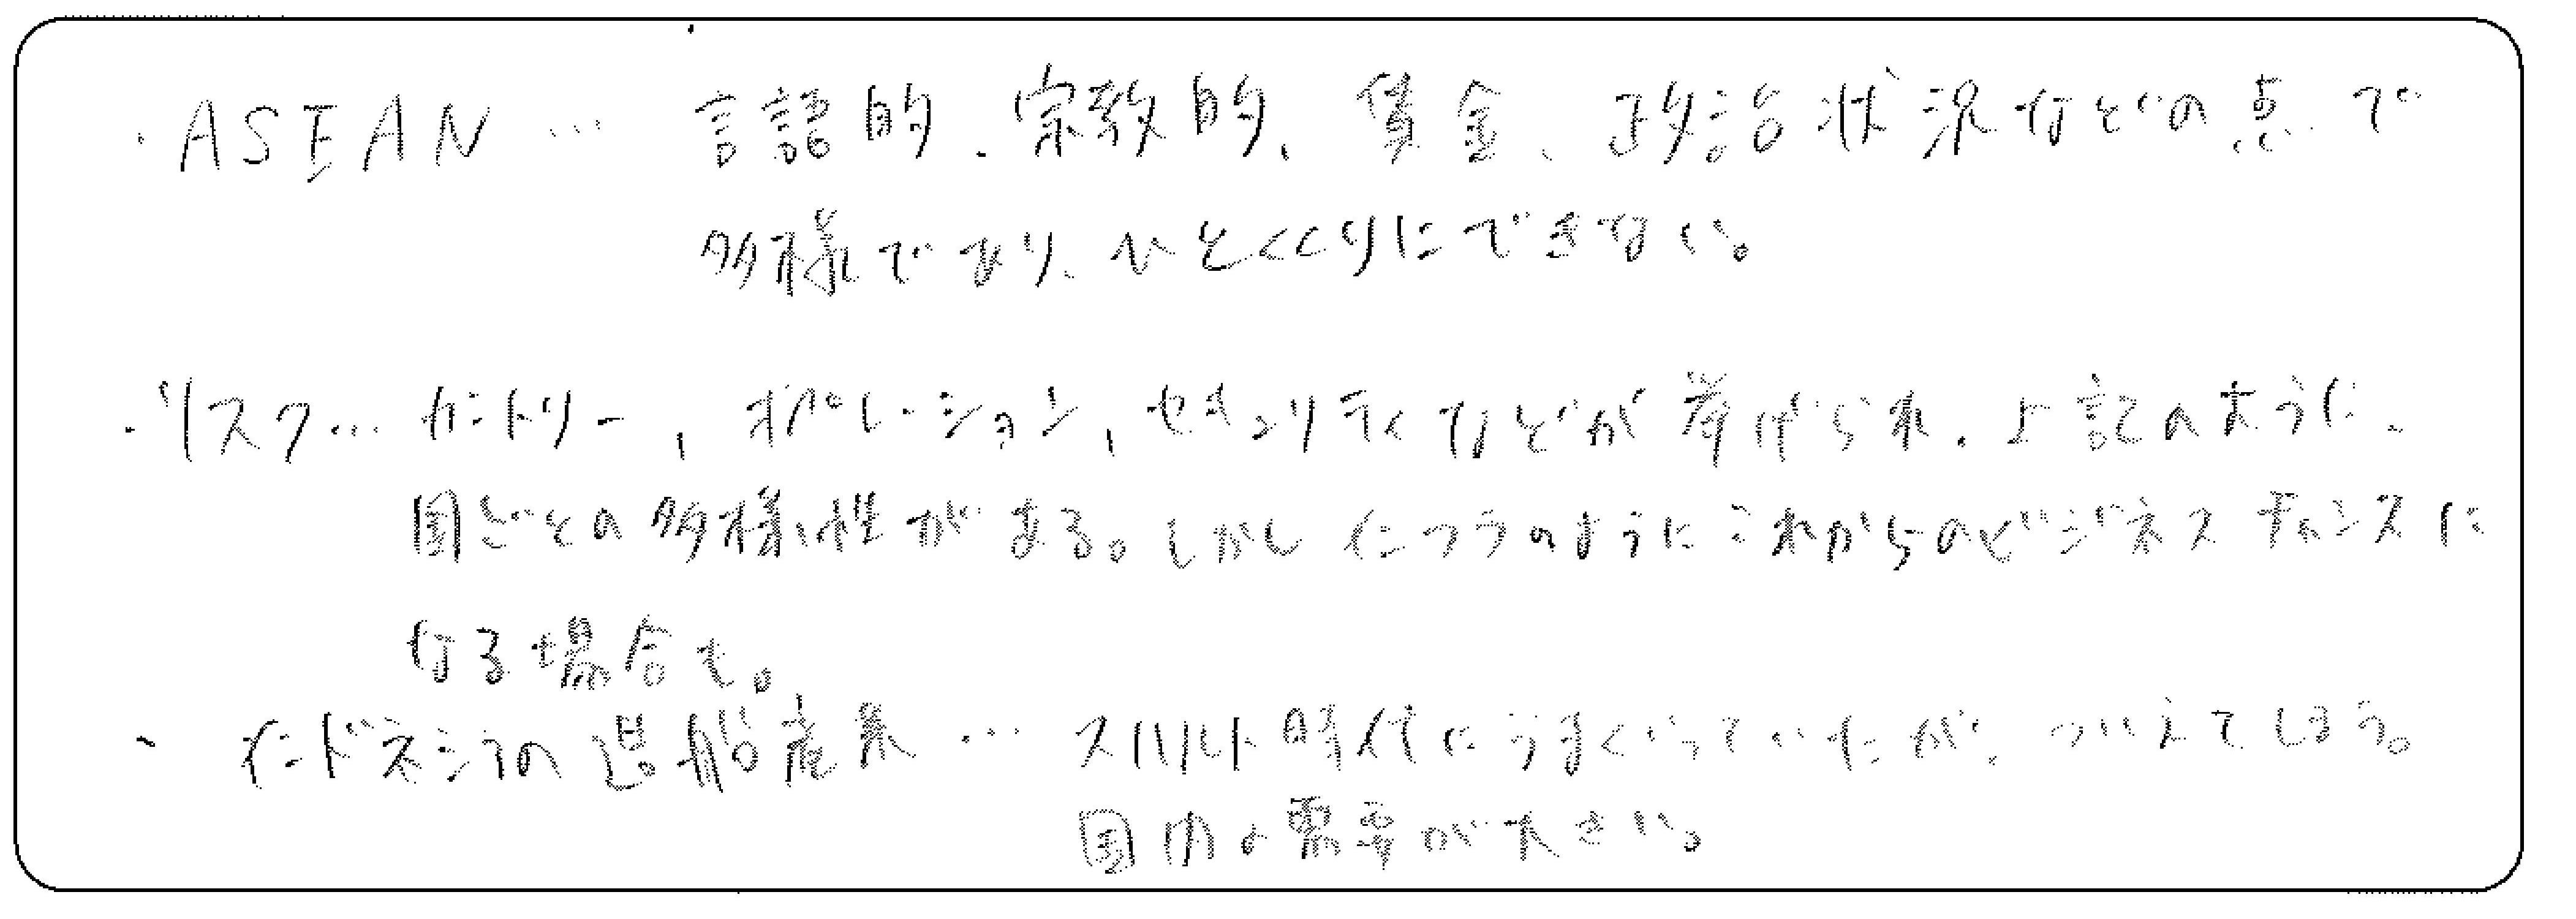 ・ASEAN… 言語的、宗教的、賃金、政治状況などの点で
多様であり、ひとくくりにできない。
・リスク… カントリー、オペレーション、セキュリティなどが挙げられ、上記のように、
国ごとの多様性がある。しかしインフラのようにこれからのビジネスチャンスに
なる場合も。
・インドネシアの造船産業… スハルト時代にうまくいっていたが、ついえてしまう。
国内の需要が大きい。